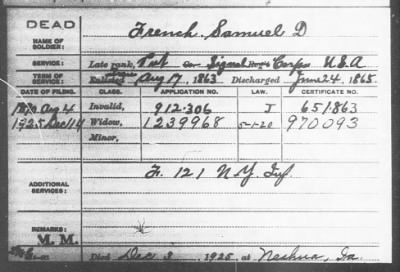 DEAD
NAME OF SOLDIER: French, Samuel D
SERVICE: Late rank, Pvt Signal Corps U.S.A
TERM OF SERVICE: Enlisted Aug 17, 1863 Discharged June 24, 1865.
DATE OF FILING. CLASS. APPLICATION NO. LAW. CERTIFICATE NO.
Aug 4 Invalid, 912.306 J 651863
1925 Dec 14 Widow, 1239968 5-1-20 970093
Minor,
ADDITIONAL SERVICES: F. 121 N.Y. Inf
REMARKS:
M. M.
Died Dec 3, 1925, at Neshua, Ia.